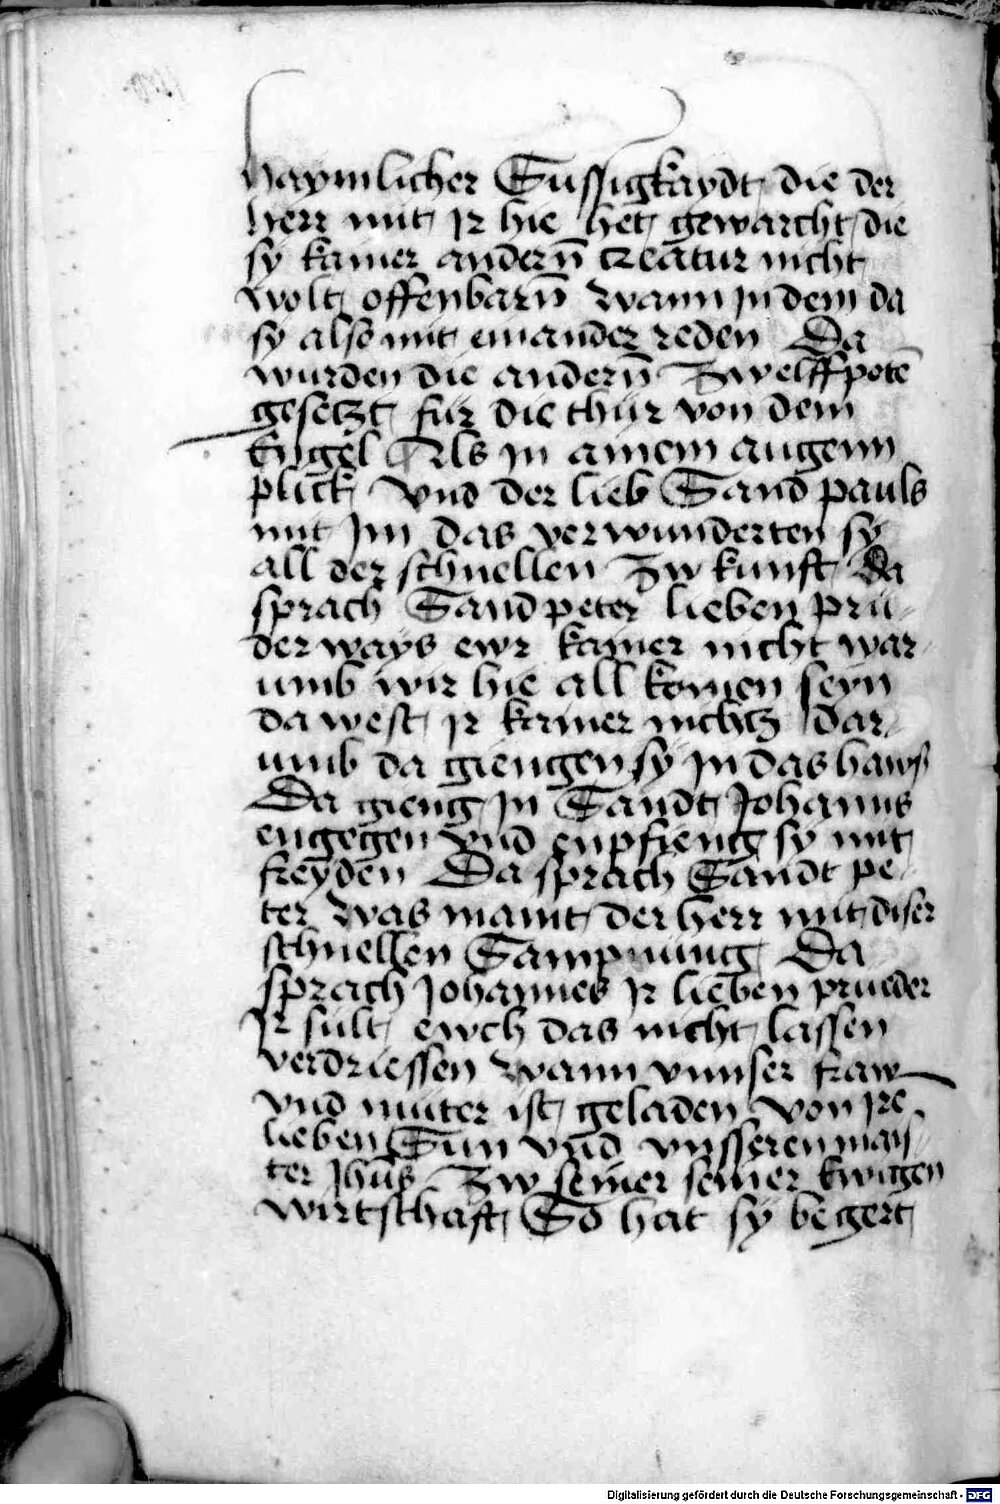 haymlicher Sussigkaydt die der
herr mit Ir hie het gewarcht die
sy kainer andern̄ creatur nicht
wolt offenbarn̄ Wann in dem da
sy also mit einander reden Da
wurden die andern̄ Zwelffpotē
gesetzt für die thür von dem
Engel Als in ainem augenn
plick Vnd der lieb Sand pauls
mit Im das verwunderten sy
all der schnellen Zw kunft Da
sprach Sand peter lieben prü-
der ways ewr kainer nicht war-
umb wir hie all komen seyn
da west ir kainer nichtz dar-
umb da giengen sy in das haws
Da gieng in Sandt Johanns
engegen vnd enpfieng sy mit
freyden Da sprach Sandt pe-
ter Was maint der herr mit diser
schnellen Sampnung Da
sprach Johannes Ir lieben prueder
Ir sült ewch das nicht lassen
verdriessen Wann vnnser fraw
vnd muter ist geladen von ire
lieben Sun vnd vnsseren mais-
ter Jhūs Zw seiner seiner Ewigen
wirtschaft So hat sy begert
Digitalisierung gefördert durch die Deutsche Forschungsgemeinschaft - DFG